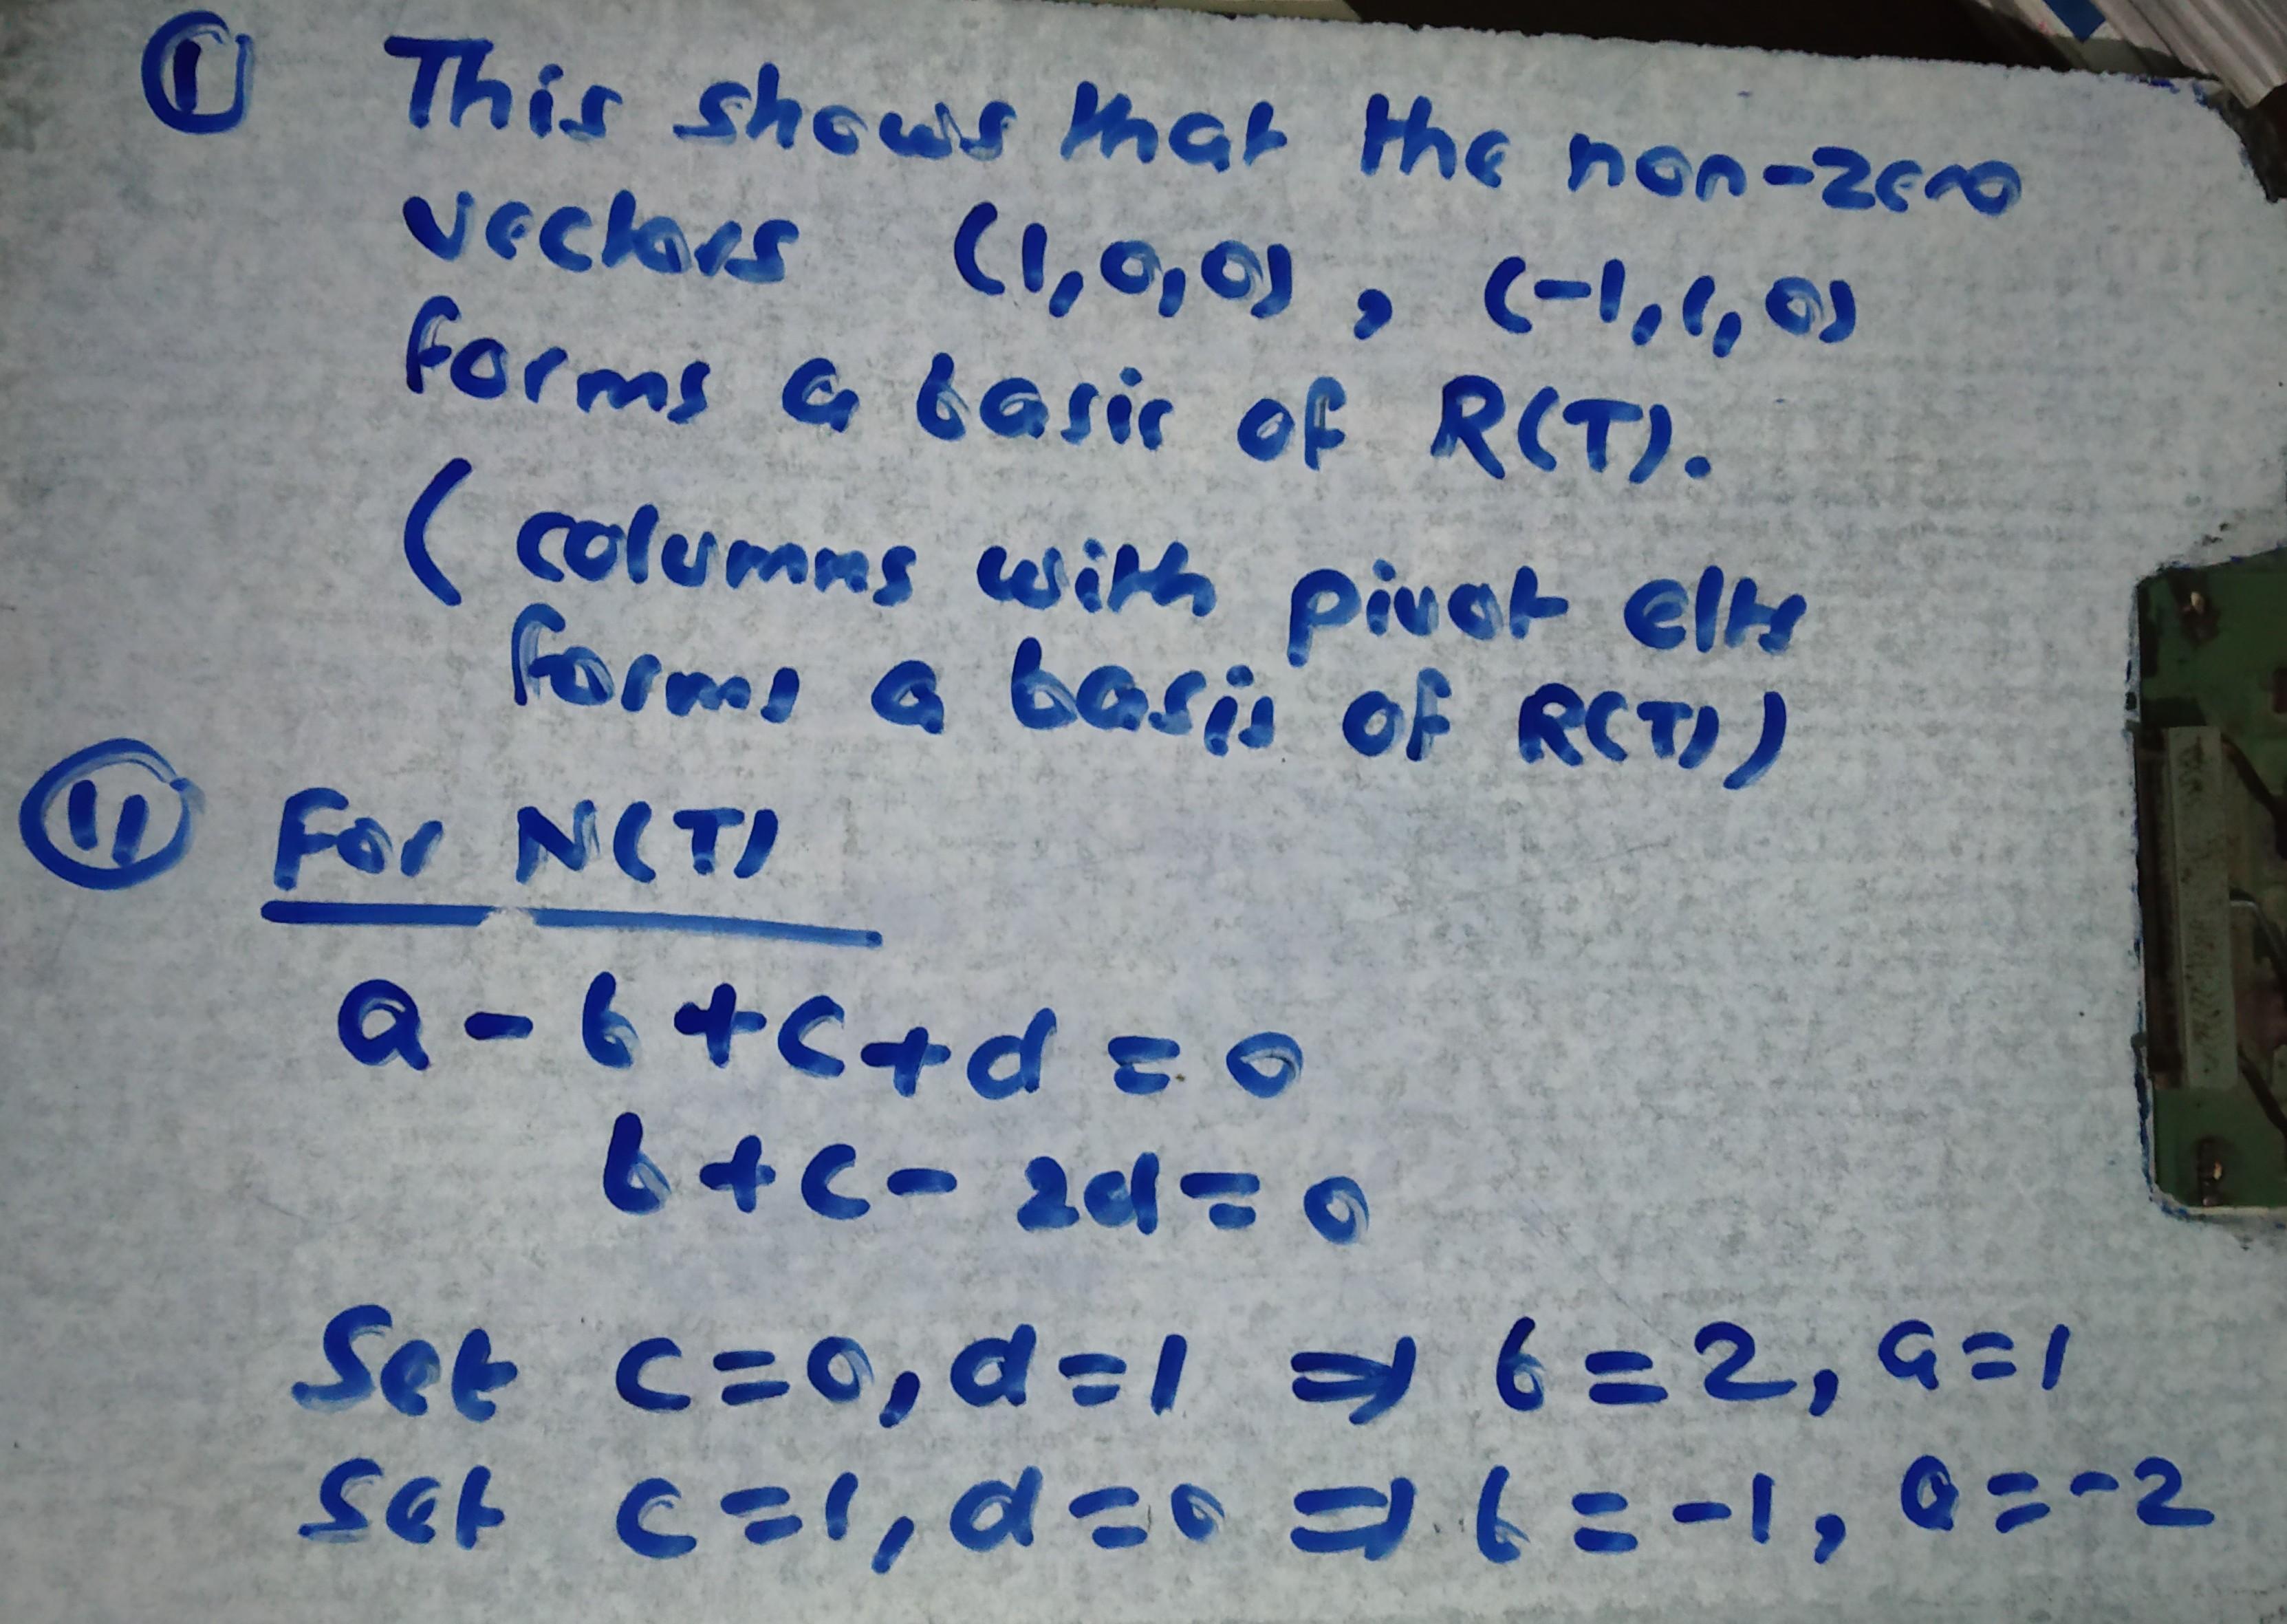 ① This shows that the non-zero
vectors (1,0,0), (-1,1,0)
forms a basis of R(T).
( columns with pivot elts
forms a basis of R(T))
⑪ For N(T)
a - b + c + d = 0
b + c - 2d = 0
Set c=0, d=1 ⇒ b=2, a=1
Set c=1, d=0 ⇒ b=-1, a=-2